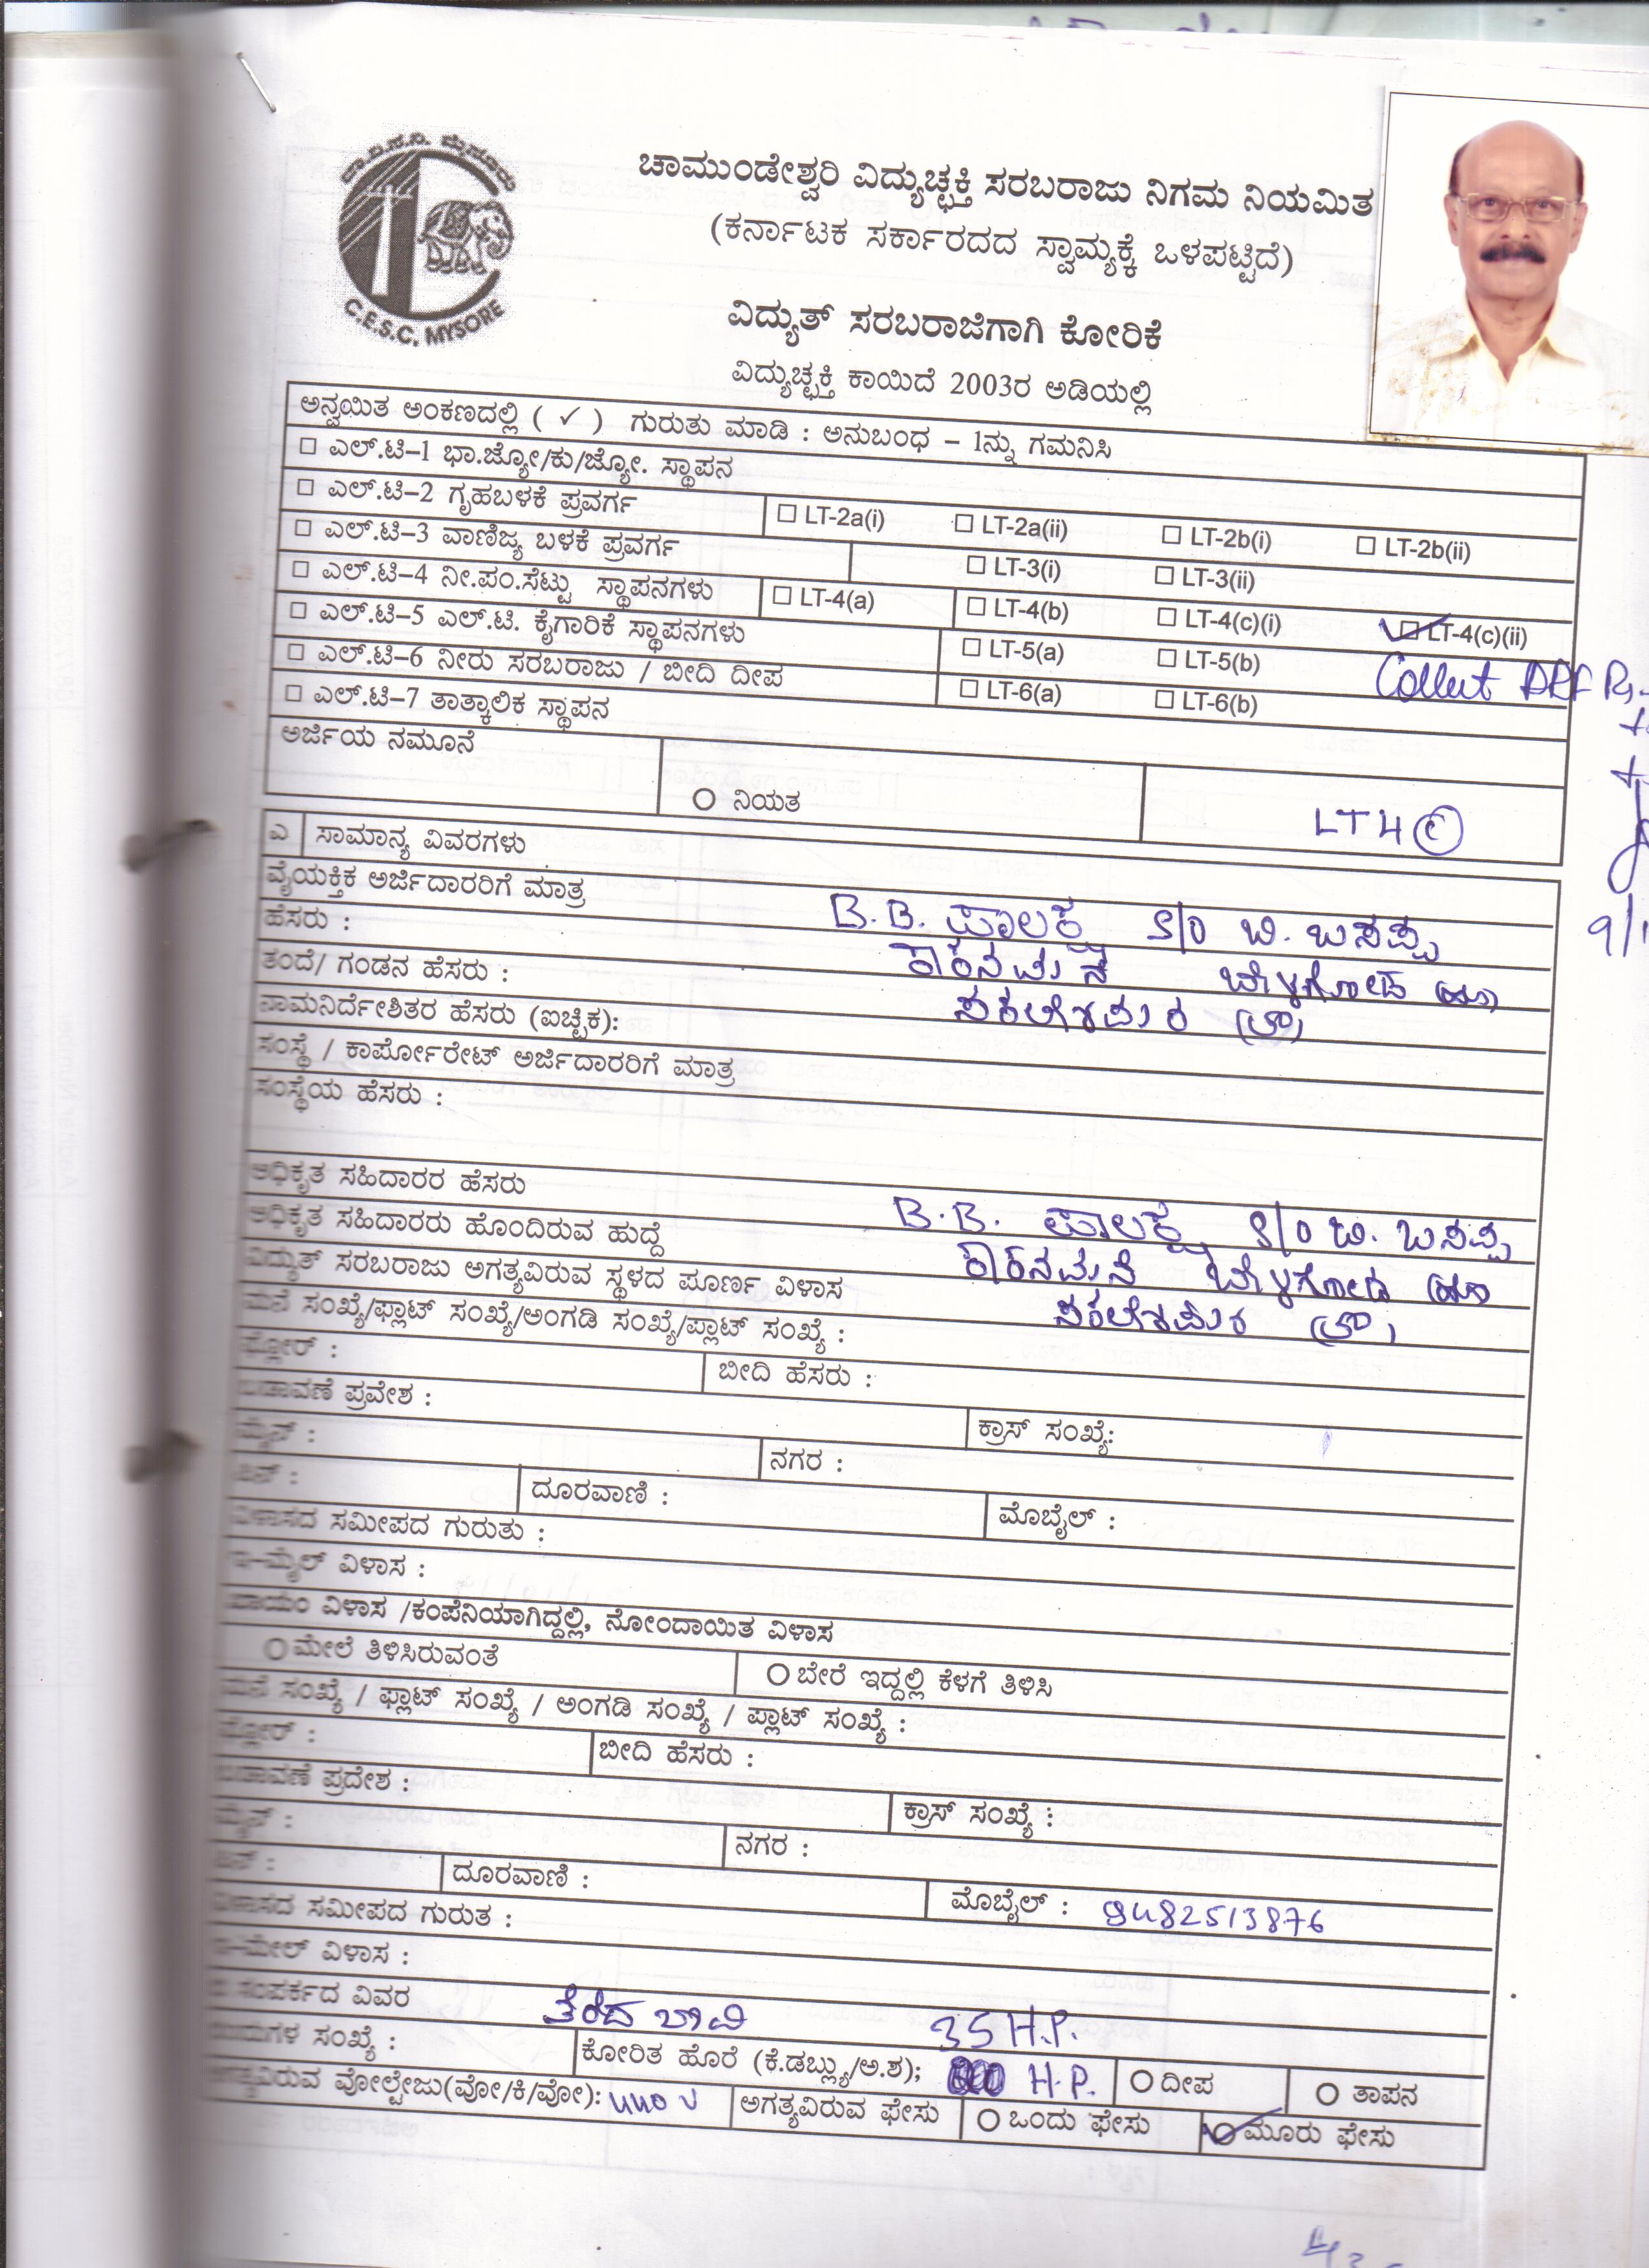 ಚಾ.ವಿ.ಸ.ನಿ. ಮೈಸೂರು
C.E.S.C, MYSORE
ಚಾಮುಂಡೇಶ್ವರಿ ವಿದ್ಯುಚ್ಛಕ್ತಿ ಸರಬರಾಜು ನಿಗಮ ನಿಯಮಿತ
(ಕರ್ನಾಟಕ ಸರ್ಕಾರದದ ಸ್ವಾಮ್ಯಕ್ಕೆ ಒಳಪಟ್ಟಿದೆ)
ವಿದ್ಯುತ್ ಸರಬರಾಜಿಗಾಗಿ ಕೋರಿಕೆ
ವಿದ್ಯುಚ್ಛಕ್ತಿ ಕಾಯಿದೆ 2003ರ ಅಡಿಯಲ್ಲಿ
ಅನ್ವಯಿತ ಅಂಕಣದಲ್ಲಿ ( ✓ ) ಗುರುತು ಮಾಡಿ : ಅನುಬಂಧ – 1ನ್ನು ಗಮನಿಸಿ
☐ ಎಲ್.ಟಿ–1 ಭಾ.ಜ್ಯೋ/ಕು/ಜ್ಯೋ. ಸ್ಥಾಪನ
☐ ಎಲ್.ಟಿ–2 ಗೃಹಬಳಕೆ ಪ್ರವರ್ಗ ☐ LT-2a(i) ☐ LT-2a(ii) ☐ LT-2b(i) ☐ LT-2b(ii)
☐ ಎಲ್.ಟಿ–3 ವಾಣಿಜ್ಯ ಬಳಕೆ ಪ್ರವರ್ಗ ☐ LT-3(i) ☐ LT-3(ii)
☐ ಎಲ್.ಟಿ–4 ನೀ.ಪಂ.ಸೆಟ್ಟು ಸ್ಥಾಪನಗಳು ☐ LT-4(a) ☐ LT-4(b) ☐ LT-4(c)(i) ☑ LT-4(c)(ii)
☐ ಎಲ್.ಟಿ–5 ಎಲ್.ಟಿ. ಕೈಗಾರಿಕೆ ಸ್ಥಾಪನಗಳು ☐ LT-5(a) ☐ LT-5(b)
Collect
☐ ಎಲ್.ಟಿ–6 ನೀರು ಸರಬರಾಜು / ಬೀದಿ ದೀಪ ☐ LT-6(a) ☐ LT-6(b)
☐ ಎಲ್.ಟಿ–7 ತಾತ್ಕಾಲಿಕ ಸ್ಥಾಪನ
ಅರ್ಜಿಯ ನಮೂನೆ ○ ನಿಯತ LT 4 (C)
ಎ ಸಾಮಾನ್ಯ ವಿವರಗಳು
ವೈಯಕ್ತಿಕ ಅರ್ಜಿದಾರರಿಗೆ ಮಾತ್ರ
ಹೆಸರು : B.B. ಪಾಲಕ್ಷ S/O ಬಿ. ಬಸಪ್ಪ
ತಂದೆ/ ಗಂಡನ ಹೆಸರು : ಕಾರನಮನೆ ಬೆಳಗೋಡು (ಹೂ)
ನಾಮನಿರ್ದೇಶಿತರ ಹೆಸರು (ಐಚ್ಛಿಕ): ಸಕಲೇಶಪುರ (ತಾ)
ಸಂಸ್ಥೆ / ಕಾರ್ಪೋರೇಟ್ ಅರ್ಜಿದಾರರಿಗೆ ಮಾತ್ರ
ಸಂಸ್ಥೆಯ ಹೆಸರು :
ಅಧಿಕೃತ ಸಹಿದಾರರ ಹೆಸರು
ಅಧಿಕೃತ ಸಹಿದಾರರು ಹೊಂದಿರುವ ಹುದ್ದೆ B.B. ಪಾಲಕ್ಷ S/O ಬಿ. ಬಸಪ್ಪ
ವಿದ್ಯುತ್ ಸರಬರಾಜು ಅಗತ್ಯವಿರುವ ಸ್ಥಳದ ಪೂರ್ಣ ವಿಳಾಸ ಕಾರನಮನೆ ಬೆಳಗೋಡು (ಹೂ)
ಮನೆ ಸಂಖ್ಯೆ/ಫ್ಲಾಟ್ ಸಂಖ್ಯೆ/ಅಂಗಡಿ ಸಂಖ್ಯೆ/ಪ್ಲಾಟ್ ಸಂಖ್ಯೆ : ಸಕಲೇಶಪುರ (ತಾ)
ಫ್ಲೋರ್ : ಬೀದಿ ಹೆಸರು :
ಬಡಾವಣೆ ಪ್ರವೇಶ : ಕ್ರಾಸ್ ಸಂಖ್ಯೆ:
ಮೈನ್ : ನಗರ :
ಪಿನ್ : ದೂರವಾಣಿ : ಮೊಬೈಲ್ :
ವಿಳಾಸದ ಸಮೀಪದ ಗುರುತು :
ಇ–ಮೈಲ್ ವಿಳಾಸ :
ಖಾಯಂ ವಿಳಾಸ /ಕಂಪೆನಿಯಾಗಿದ್ದಲ್ಲಿ, ನೋಂದಾಯಿತ ವಿಳಾಸ
○ ಮೇಲೆ ತಿಳಿಸಿರುವಂತೆ ○ ಬೇರೆ ಇದ್ದಲ್ಲಿ ಕೆಳಗೆ ತಿಳಿಸಿ
ಮನೆ ಸಂಖ್ಯೆ / ಫ್ಲಾಟ್ ಸಂಖ್ಯೆ / ಅಂಗಡಿ ಸಂಖ್ಯೆ / ಪ್ಲಾಟ್ ಸಂಖ್ಯೆ :
ಫ್ಲೋರ್ : ಬೀದಿ ಹೆಸರು :
ಬಡಾವಣೆ ಪ್ರದೇಶ : ಕ್ರಾಸ್ ಸಂಖ್ಯೆ :
ಮೈನ್ : ನಗರ :
ಪಿನ್ : ದೂರವಾಣಿ : ಮೊಬೈಲ್ : 9482513876
ವಿಳಾಸದ ಸಮೀಪದ ಗುರುತ :
ಇ–ಮೇಲ್ ವಿಳಾಸ :
ಸಂಪರ್ಕದ ವಿವರ ತೆರೆದ ಬಾವಿ 35 H.P.
ಸಂಖ್ಯೆ : ಕೋರಿತ ಹೊರೆ (ಕೆ.ಡಬ್ಲ್ಯು/ಅ.ಶ); H.P. ○ ದೀಪ ○ ತಾಪನ
ಅಗತ್ಯವಿರುವ ವೋಲ್ಟೇಜು(ವೋ/ಕಿ/ವೋ): 440 V ಅಗತ್ಯವಿರುವ ಫೇಸು ○ ಒಂದು ಫೇಸು ○ ಮೂರು ಫೇಸು